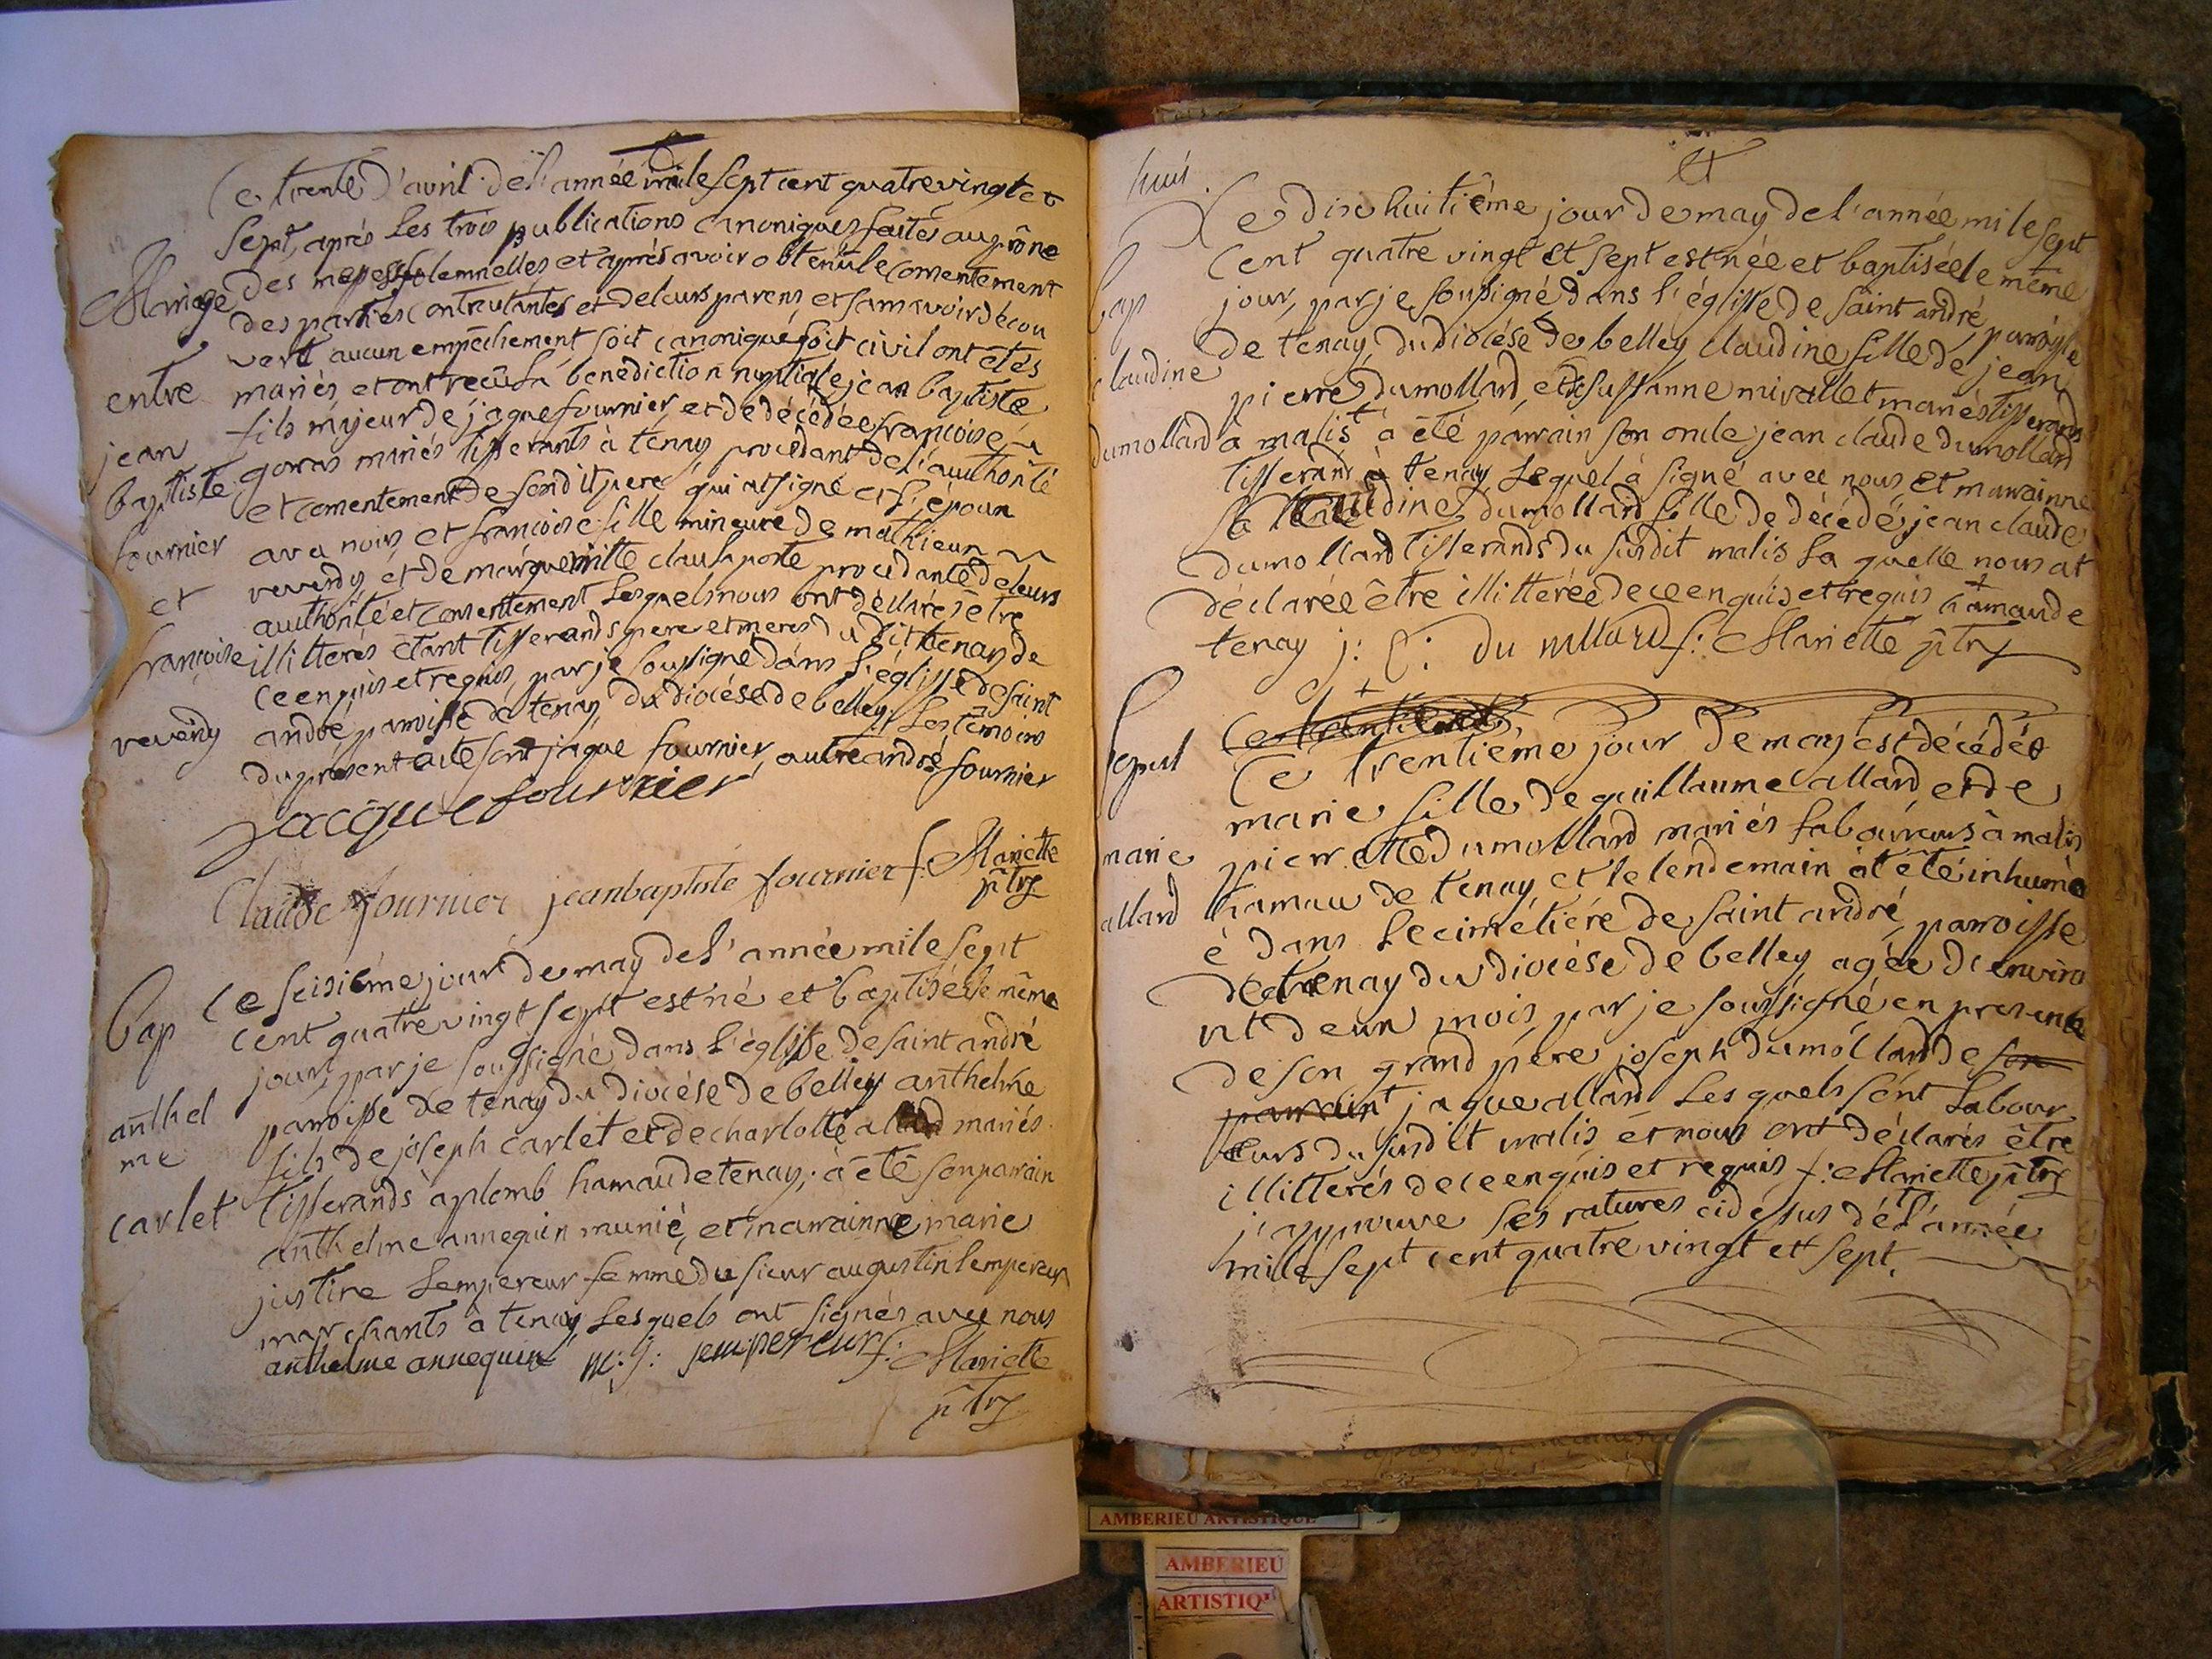 Ce trente d'avril de l'année mile sept cent quatre vingt et
sept, aprés les trois publications canoniques faites au prône
des messes solemnelles et aprés avoir obtenüle consentement
des parties contractantes et de leurs parens et sans avoir décou
vert aucun empêchement soit canonique soit civil ont étés
mariés, et ont reçû la benediction nuptiale jean baptiste
fils majeur de jaque fournier, et de décédée francoise
goras mariés tisserants à tenay procédant de l'authorité
et consentement de son dit pere qui at signé et l'époux
avec nous et francoise fille mineure de mathieu
reverdy et de marguerite claulaporte procédante de leurs
authorité et consentement lesquels nous ont déclarés être
illiterés étant tisserands pere et meres du dit tenay de
ce enquis et requis, par je soussigné dans l'églisse de saint
andré paroisse de tenay du diocése de belley. les témoins
du présent acte sont jaque fournier, autre andré fournier
Mariage
entre
jean
baptiste
fournier
et
francoise
reverdy
Jacque fournier
Claude fournier jean baptiste fournier f: Mariette
p̃tr
Bap
anthel
me
carlet
Ce seisiéme jour de may de l'année mile sept
cent quatre vingt sept est né et baptisé le même
jour, par je soussigné, dans l'églisse de saint andré
paroisse de tenay du diocése de belley anthelme
fils de joseph carlet et de charlotte allard mariés
tisserands à plomb hamau de tenay; à été son parain
anthelme annequin munié, et marainne marie
justine lempereur femme du sieur augustin lempereur
marchants à tenay lesquels ont signés avec nous
anthelme annequin m: j: lempereur f: Mariette
p̃tr
huis
Bap
claudine
dumollard
Le dix huitiéme jour de may de l'année mile sept
cent quatre vingt et sept est née et baptisée le même
jour, par je soussigné, dans l'églisse de saint andré, paroisse
de tenay, du diocése de belley claudine fille de jean
pierre dumollard, et de sussanne mirallet mariés tisserands
à malis à été parrain son oncle jean claude dumollard
tisserand à tenay lequel à signé avec nous et marainne
la claudine dumollard fille de décédé jean claude
dumollard tisserands du susdit malis la quelle nous at
déclarée être illiterée de ce enquis et requis hamau de
tenay j: C: du mollard f: Mariette p̃tr
Sepul
marie
allard
Ce trentiéme jour de may est décédée
marie fille de guillaume allard et de
pierrette dumollard mariés laboureurs à malis
hamau de tenay et le lendemain àt été inhumé
é dans le cimétiére de saint andré, paroisse
de tenay du diocése de belley agée d'environ
vt deux mois, par je soussigné en presence
de son grand pere joseph dumollard de son
parain jaque allard lesquels sont labour
eurs du susdit malis et nous ont déclarés être
illiterés de ce enquis et requis f: Mariette p̃tr
j'approuve les ratures cidésus dé l'année
mille sept cent quatre vingt et sept.
AMBERIEU ARTISTIQUE
AMBERIEU
ARTISTIQ'